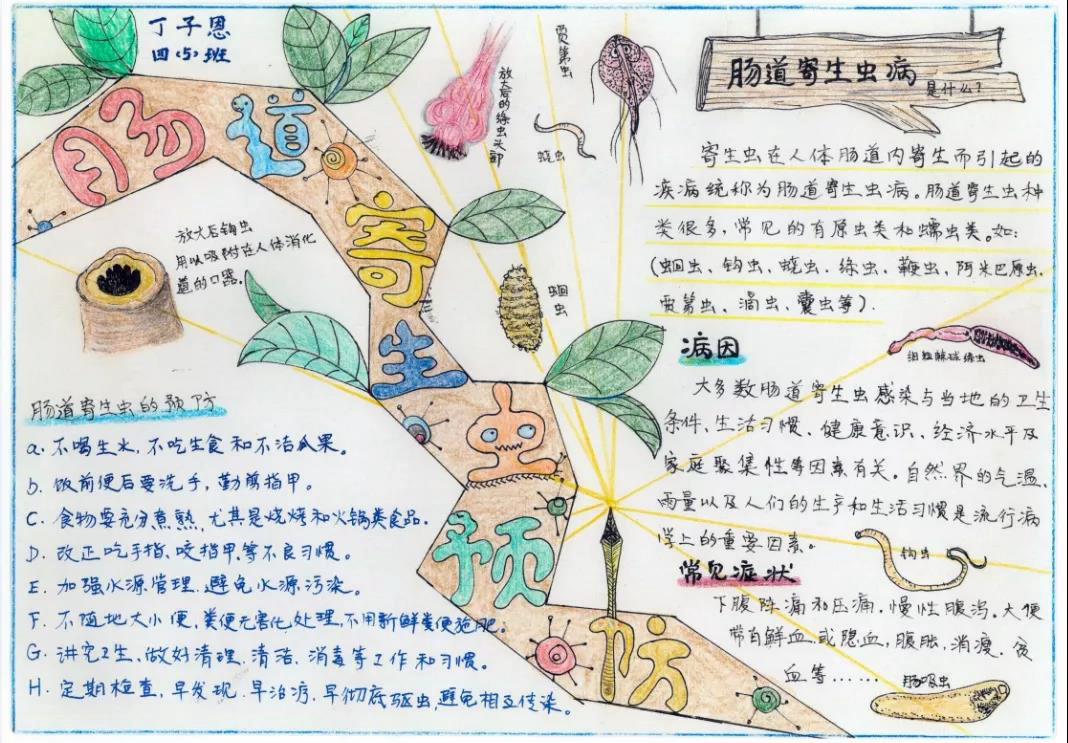 丁子恩
四(5)班
肠道寄生虫预防
放大后的绦虫头部
贾第虫
蛲虫
肠道寄生虫病
是什么?
寄生虫在人体肠道内寄生而引起的
疾病统称为肠道寄生虫病。肠道寄生虫种
类很多,常见的有原虫类和蠕虫类。如:
(蛔虫、钩虫、蛲虫、绦虫、鞭虫、阿米巴原虫、
贾第虫、滴虫、囊虫等).
放大后钩虫
用以吸附在人体消化
道的口器。
蛔虫
病因
细粒棘球绦虫
大多数肠道寄生虫感染与当地的卫生
条件、生活习惯、健康意识、经济水平及
家庭聚集性等因素有关。自然界的气温、
雨量以及人们的生产和生活习惯是流行病
学上的重要因素。
钩虫
常见症状
下腹阵痛和压痛,慢性腹泻。大便
带有鲜血或隐血,腹胀,消瘦、贫
血等……
肠吸虫
肠道寄生虫的预防
a. 不喝生水,不吃生食和不洁瓜果。
b. 饭前便后要洗手,勤剪指甲。
C. 食物要充分煮熟,尤其是烧烤和火锅类食品。
D. 改正吃手指、咬指甲等不良习惯。
E. 加强水源管理,避免水源污染。
F. 不随地大小便,粪便无害化处理,不用新鲜粪便施肥。
G. 讲究卫生,做好清理、清洁、消毒等工作和习惯。
H. 定期检查,早发现、早治疗、早彻底驱虫,避免相互传染。